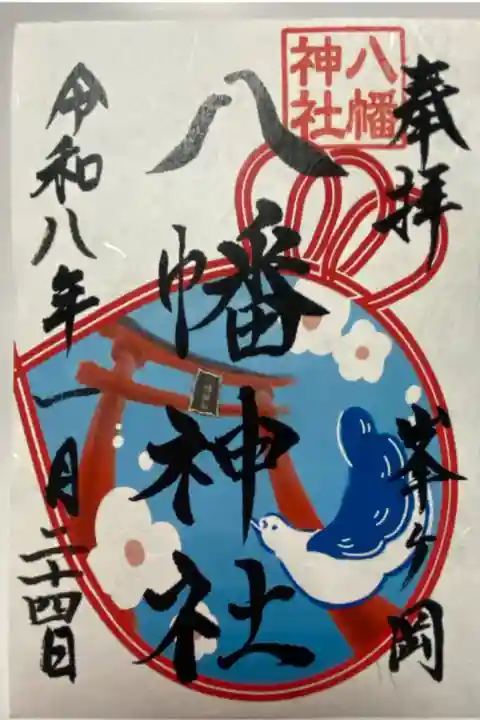 奉拝
峯ヶ岡
八幡
神社
八幡神社
令和八年一月二十四日